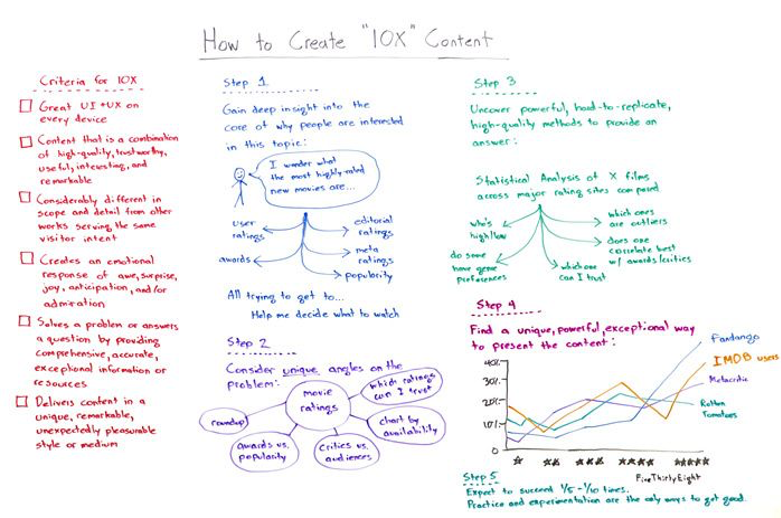 How to Create "10X" Content
Criteria for 10X
Great UI + UX on
every device
Content that is a combination
of high-quality, trustworthy,
useful, interesting, and
remarkable
Considerably different in
scope and detail from other
works serving the same
visitor intent
Creates an emotional
response of awe, surprise,
joy, anticipation, and/or
admiration
Solves a problem or answers
a question by providing
comprehensive, accurate,
exceptional information or
resources
Delivers content in a
unique, remarkable,
unexpectedly pleasurable
style or medium
Step 1
Gain deep insight into the
core of why people are interested
in this topic:
I wonder what
the most highly-rated
new movies are...
user
ratings
editorial
ratings
awards
meta
ratings
popularity
All trying to get to...
Help me decide what to watch
Step 2
Consider unique angles on the
problem:
movie
ratings
which ratings
can I trust
roundup
chart by
availability
awards vs.
popularity
critics vs.
audiences
Step 3
Uncover powerful, hard-to-replicate,
high-quality methods to provide an
answer:
Statistical Analysis of X films
across major rating sites compared
who's
high/low
which ones
are outliers
do some
have genre
preferences
does one
correlate best
w/ awards/critics
which one
can I trust
Step 4
Find a unique, powerful, exceptional way
to present the content:
Fandango
IMDB users
Metacritic
Rotten
Tomatoes
40%
30%
20%
10%
0
FiveThirtyEight
Step 5
Expect to succeed 1/5 - 1/10 times.
Practice and experimentation are the only ways to get good.